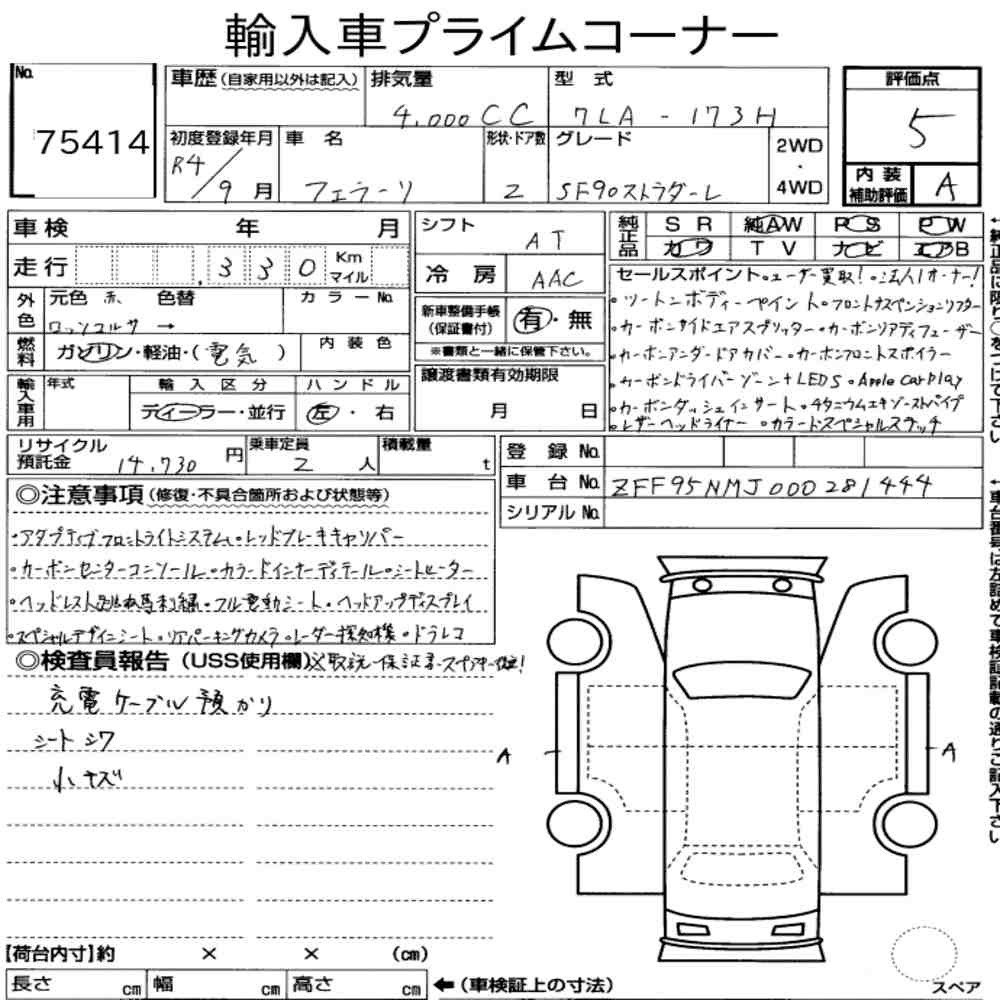 輸入車プライムコーナー
No.
75414
車歴(自家用以外は記入)
排気量
4,000CC
型式
7LA - 173H
初度登録年月
R4/9月
車名
フェラーリ
形状・ドア数
2
グレード
SF90ストラダーレ
2WD
・
4WD
評価点
5
内装
補助評価
A
車検 年 月
走行 ,330 Km マイル
外色
元色 赤 色替
ロッソコルサ →
カラーNo.
燃料
ガソリン・軽油・(電気)
内装色
輸入車用
年式
輸入区分
ディーラー・並行
ハンドル
左・右
シフト
AT
冷房
AAC
新車整備手帳
(保証書付)
有・無
※書類と一緒に保管下さい。
譲渡書類有効期限
月 日
純正品
SR 純AW PS PW
カワ TV ナビ エアB
セールスポイント・ユーザー買取!・法人1オーナー!
・ツートンボディーペイント・フロントサスペンションリフター
・カーボンサイドエアスプリッター・カーボンリアディフューザー
・カーボンアンダードアカバー・カーボンフロントスポイラー
・カーボンドライバーゾーン+LEDS・Apple carplay
・カーボンダッシュインサート・チタニウムエキゾーストパイプ
・レザーヘッドライナー・カラードスペシャルステッチ
←純正品に限り○をつけて下さい
リサイクル
預託金
14,730円
乗車定員
2人
積載量
t
登録No.
車台No.
ZFF95NMJ000281444
シリアルNo.
←車台番号は左詰めで車検証記載の通りご記入下さい。
◎注意事項(修復・不具合箇所および状態等)
・アダプティブフロントライトシステム・レッドブレーキキャリパー
・カーボンセンターコンソール・カラードインナーディテール・シートヒーター
・ヘッドレスト跳ね馬刺繍・フル電動シート・ヘッドアップディスプレイ
・スペシャルデザインシート・リアパーキングカメラ・レーダー探知機・ドラレコ
◎検査員報告(USS使用欄)
取説・保証書・スペアキー
充電ケーブル預かり
シートシワ
小キズ
A
A
【荷台内寸】約 × × (cm)
長さ cm 幅 cm 高さ cm
←(車検証上の寸法)
スペア